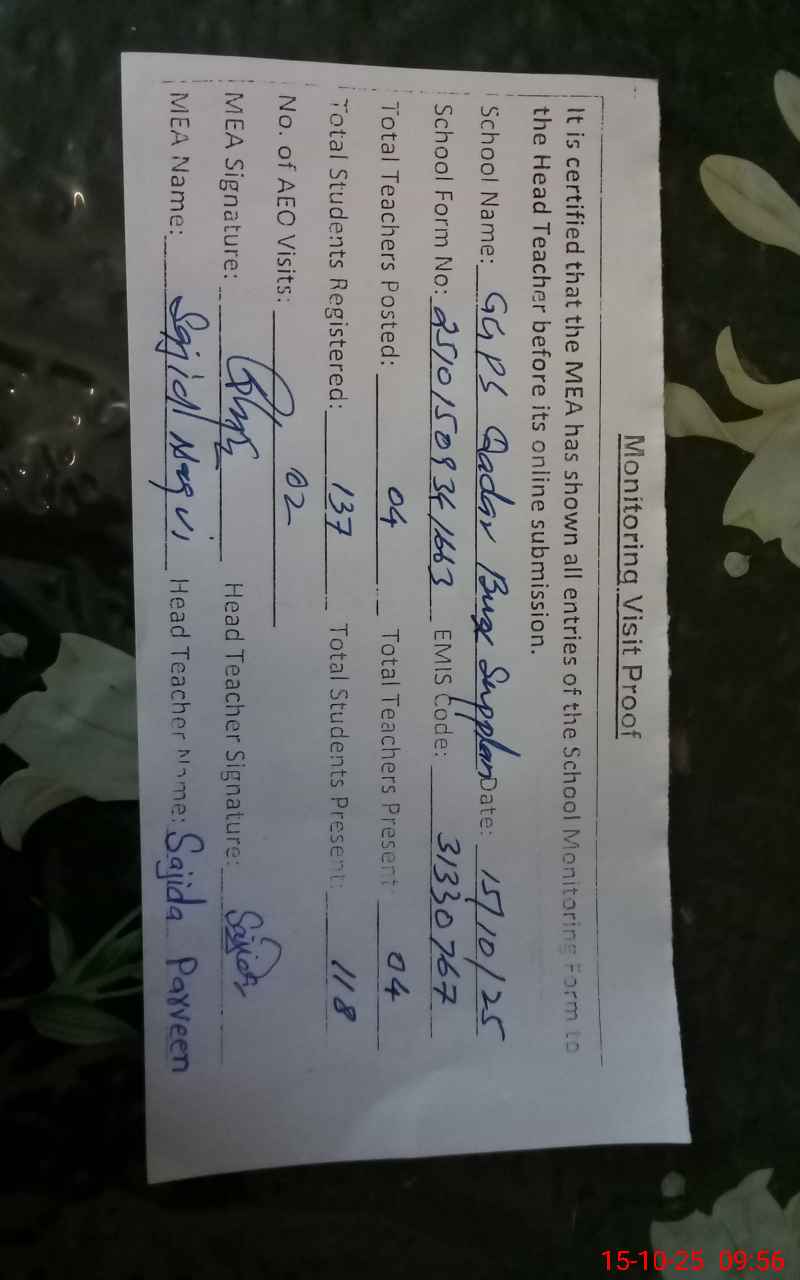 Monitoring Visit Proof
It is certified that the MEA has shown all entries of the School Monitoring Form to
the Head Teacher before its online submission.
School Name: GGPS Qadar Bux Supplan Date: 15/10/25
School Form No: 25101509341663 EMIS Code: 31330767
Total Teachers Posted: 04 Total Teachers Present: 04
Total Students Registered: 137 Total Students Present: 118
No. of AEO Visits: 02
MEA Signature: Head Teacher Signature: Sajida
MEA Name: Sajid Naqvi Head Teacher Name: Sajida Parveen
15-10-25 09:56